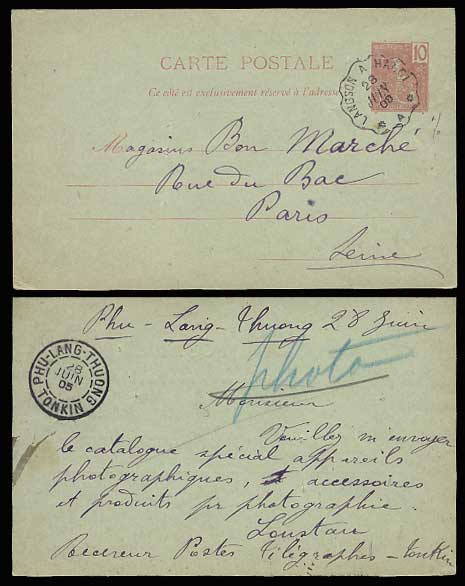 CARTE POSTALE
10
Ce côté est exclusivement réservé à l'adresse
LANGSON A HANOI
28
JUIN
05
Magasins Bon Marché
Rue du Bac
Paris
Seine
Phu-Lang-Thuong 28 Juin
PHU-LANG-THUONG
28
JUIN
05
TONKIN
photo
Monsieur
Veuillez m'envoyer
le catalogue spécial appareils
photographiques, accessoires
et produits pr photographie.
Loustau
Receveur Postes Télégraphes - Tonkin